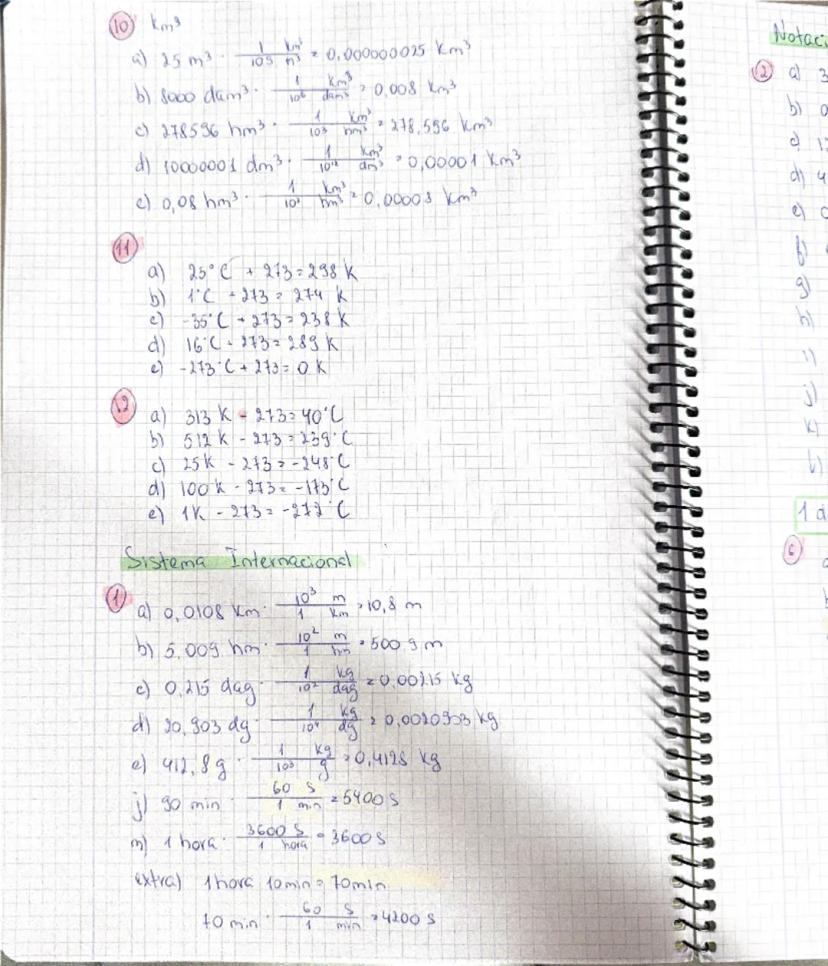 10 km³
a) 25 m³ · 1/10⁹ km³/m³ = 0,000000025 km³
b) 8000 dam³ · 1/10⁶ km³/dam³ = 0,008 km³
c) 278596 hm³ · 1/10³ km³/hm³ = 278,596 km³
d) 10000001 dm³ · 1/10¹² km³/dm³ = 0,00001 km³
e) 0,08 hm³ · 1/10³ km³/hm³ = 0,00008 km³
11
a) 25°C + 273 = 298 K
b) 1°C + 273 = 274 K
c) -35°C + 273 = 238 K
d) 16°C + 273 = 289 K
e) -273°C + 273 = 0 K
12
a) 313 K - 273 = 40°C
b) 512 K - 273 = 239°C
c) 25 K - 273 = -248°C
d) 100 K - 273 = -173°C
e) 1 K - 273 = -272°C
Sistema Internacional
1
a) 0,0108 km · 10³/1 m/km = 10,8 m
b) 5,009 hm · 10²/1 m/hm = 500,9 m
c) 0,215 dag · 1/10² kg/dag = 0,00215 kg
d) 20,903 dg · 1/10⁴ kg/dg = 0,0020903 kg
e) 412,8 g · 1/10³ kg/g = 0,4128 kg
j) 90 min · 60 s/1 min = 5400 s
m) 1 hora · 3600 s/1 hora = 3600 s
extra) 1 hora 10 min = 70 min
70 min · 60/1 s/min = 4200 s
2 a) 3
b) 0
c) 1
d) 4
e) 0
f)
g)
h)
i)
j)
k)
l)
1 d
6